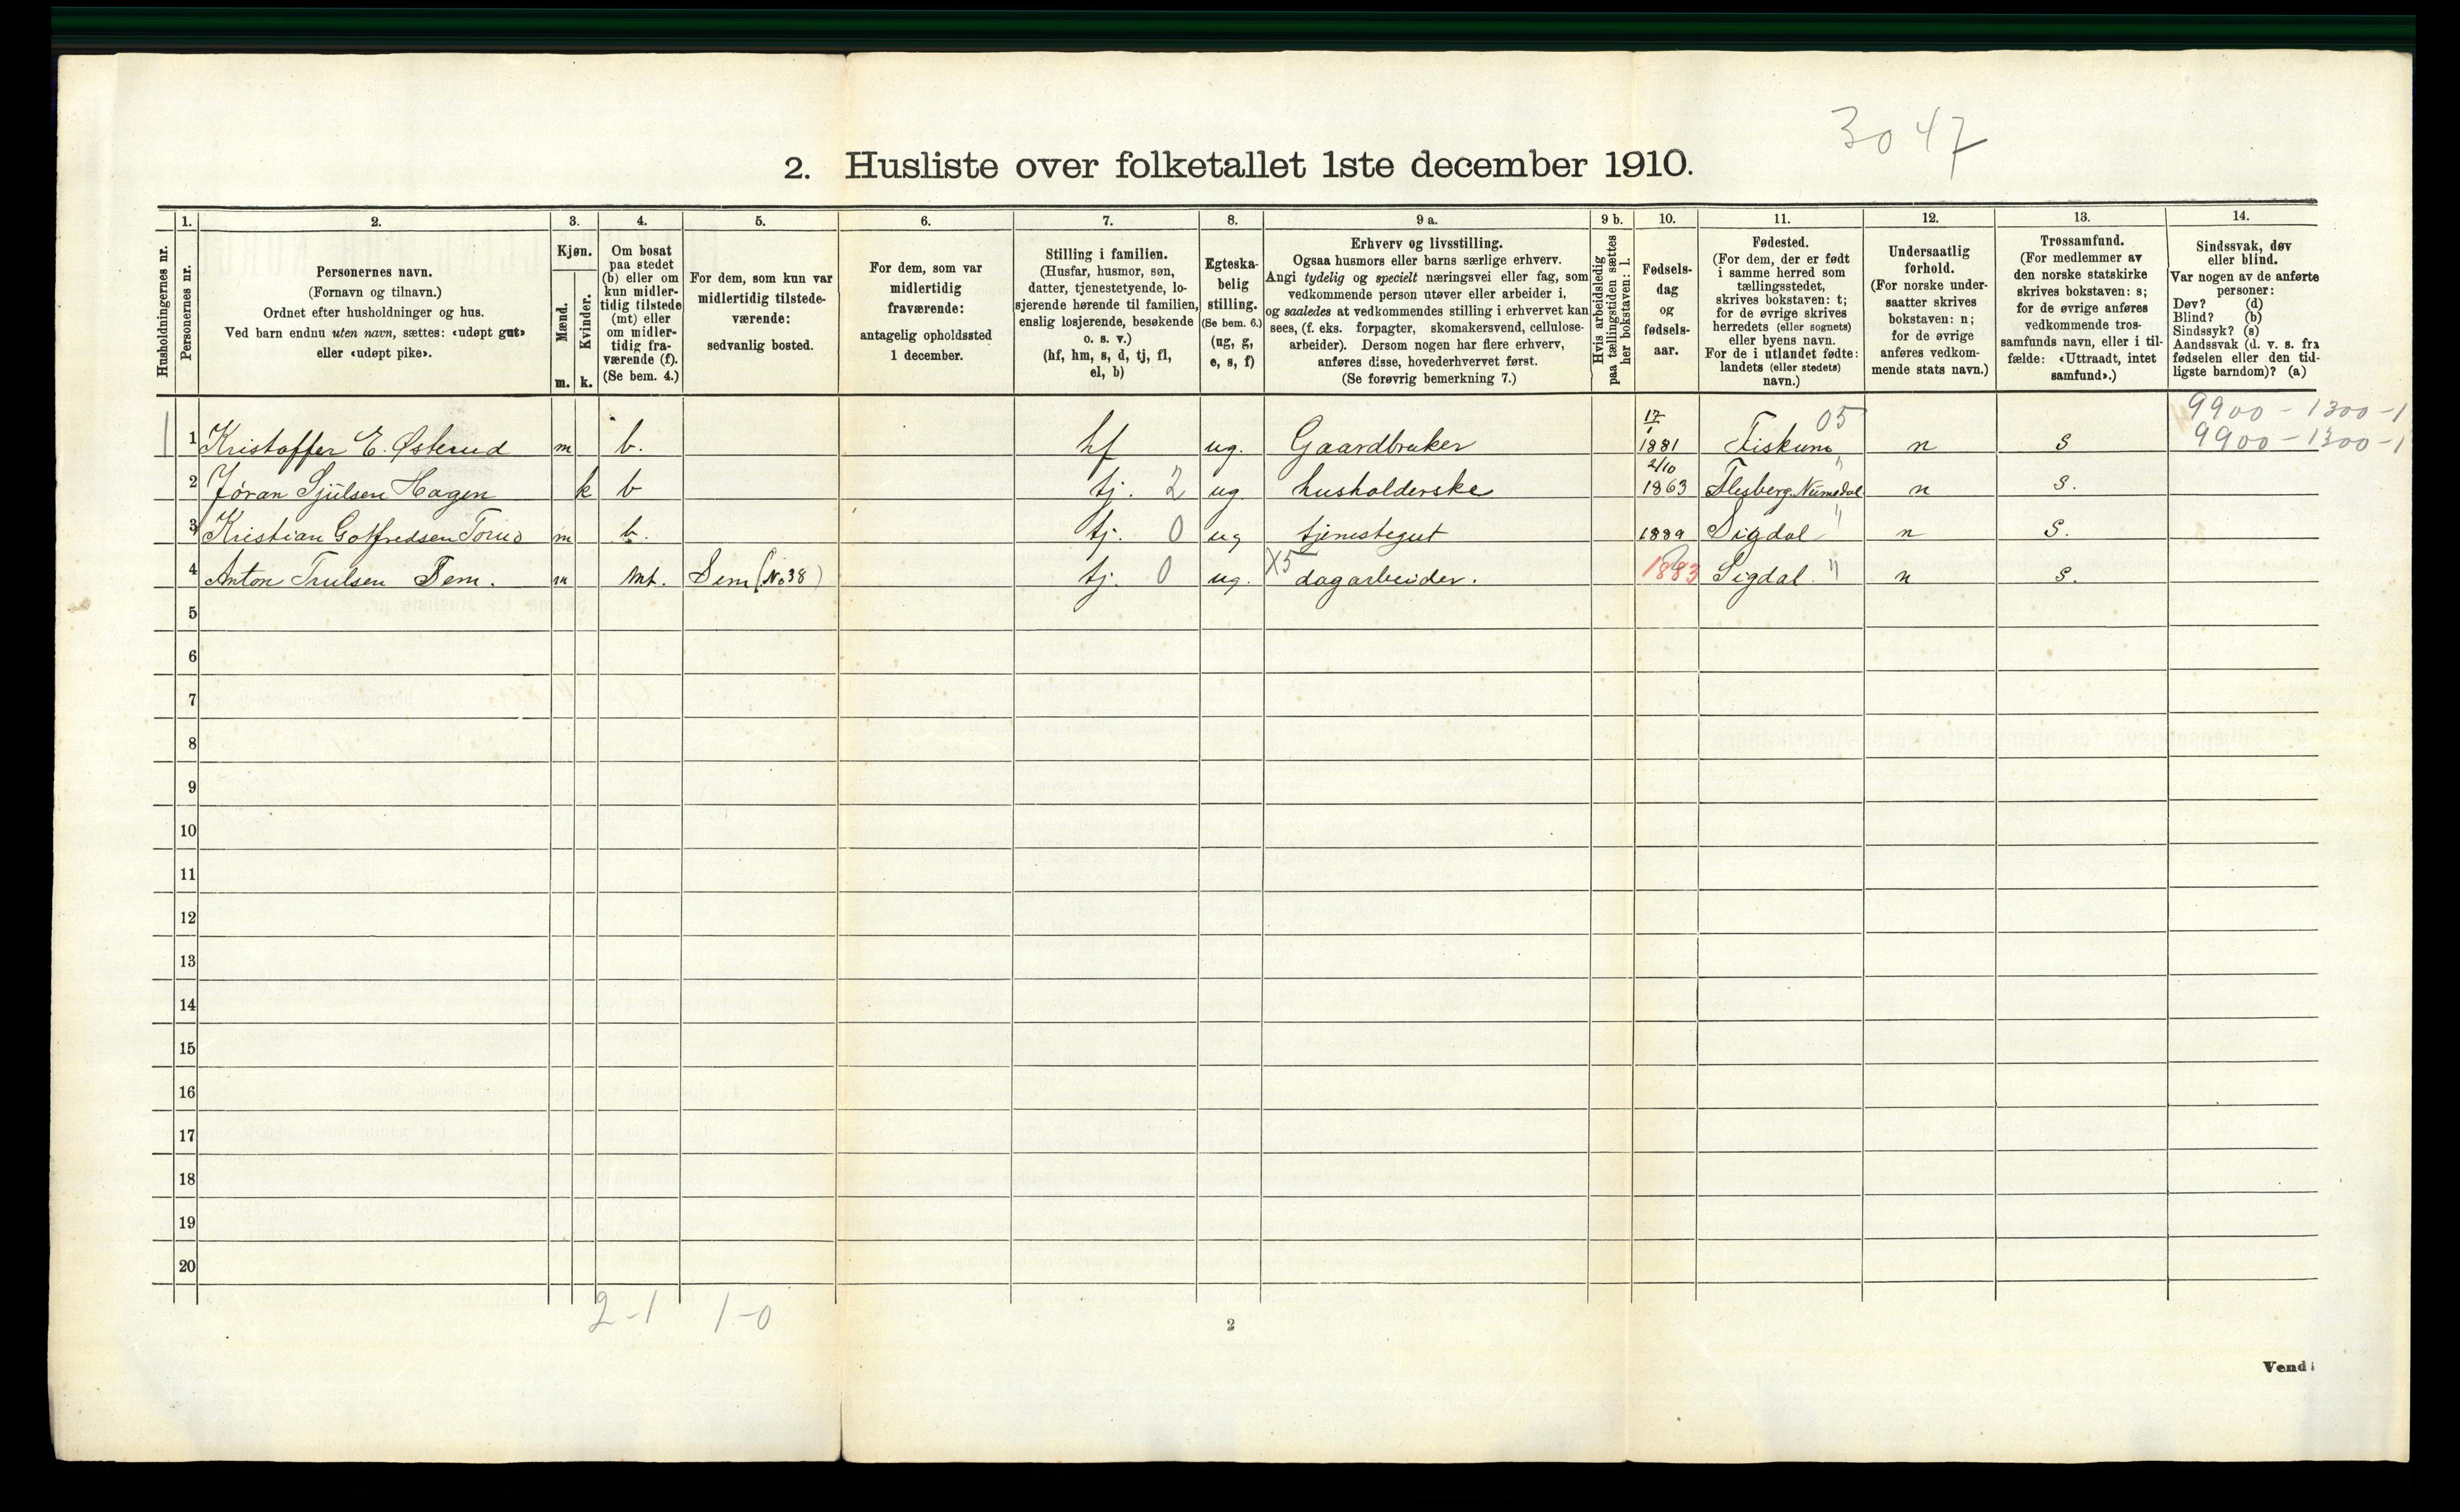 3047
2. Husliste over folketallet 1ste december 1910.
1. 2. 3. 4. 5. 6. 7. 8. 9 a. 9 b. 10. 11. 12. 13. 14.
Husholdningernes nr.
Personernes nr.
Personernes navn.
(Fornavn og tilnavn.)
Ordnet efter husholdninger og hus.
Ved barn endnu uten navn, sættes: «udøpt gut»
eller «udøpt pike».
Kjøn.
Mænd.
Kvinder.
m. k.
Om bosat
paa stedet
(b) eller om
kun midler-
tidig tilstede
(mt) eller
om midler-
tidig fra-
værende (f).
(Se bem. 4.)
For dem, som kun var
midlertidig tilstede-
værende:
sedvanlig bosted.
For dem, som var
midlertidig
fraværende:
antagelig opholdssted
1 december.
Stilling i familien.
(Husfar, husmor, søn,
datter, tjenestetyende, lo-
sjerende hørende til familien,
enslig losjerende, besøkende
o. s. v.)
(hf, hm, s, d, tj, fl,
el, b)
Egteska-
belig
stilling.
(Se bem. 6.)
(ug, g,
e, s, f)
Erhverv og livsstilling.
Ogsaa husmors eller barns særlige erhverv.
Angi tydelig og specielt næringsvei eller fag, som
vedkommende person utøver eller arbeider i,
og saaledes at vedkommendes stilling i erhvervet kan
sees, (f. eks. forpagter, skomakersvend, cellulose-
arbeider). Dersom nogen har flere erhverv,
anføres disse, hovederhvervet først.
(Se forøvrig bemerkning 7.)
Hvis arbeidsledig
paa tællingstiden sættes
her bokstaven: l.
Fødsels-
dag
og
fødsels-
aar.
Fødested.
(For dem, der er født
i samme herred som
tællingsstedet,
skrives bokstaven: t;
for de øvrige skrives
herredets (eller sognets)
eller byens navn.
For de i utlandet fødte:
landets (eller stedets)
navn.)
Undersaatlig
forhold.
(For norske under-
saatter skrives
bokstaven: n;
for de øvrige
anføres vedkom-
mende stats navn.)
Trossamfund.
(For medlemmer av
den norske statskirke
skrives bokstaven: s;
for de øvrige anføres
vedkommende tros-
samfunds navn, eller i til-
fælde: «Uttraadt, intet
samfund».)
Sindssvak, døv
eller blind.
Var nogen av de anførte
personer:
Døv? (d)
Blind? (b)
Sindssyk? (s)
Aandssvak (d. v. s. fra
fødselen eller den tid-
ligste barndom)? (a)
17/1 05 9900 - 1300 - 1
1 1 Kristoffer E. Østerud m b. hf ug. Gaardbruker 1881 Fiskum n s 9900 - 1300 - 1
2/10 "
2 Jøran Sjulsen Hagen k b tj. 2 ug. husholderske 1863 Flesberg. Numedal n s.
3 Kristian Golfredsen Torud m b. tj. 0 ug tjenestegut 1889 Sigdal " n s.
4 Anton Trulsen Sem. m mt. Sem (No 38) tj. 0 ug. X5 dagarbeider. 1883 Sigdal. " n s.
5
6
7
8
9
10
11
12
13
14
15
16
17
18
19
20
2-1 1-0
2
Vend!